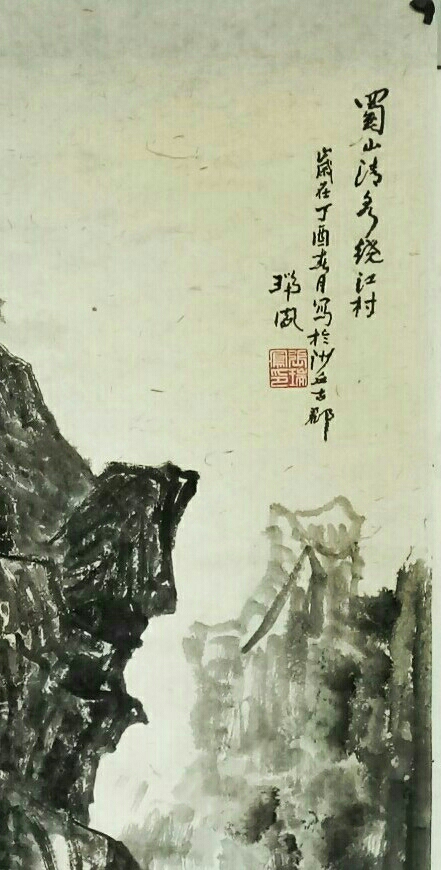 蜀山清秀绕江村
岁在丁酉春月写於沙丘古郡
瑞凤
张瑞
凤印